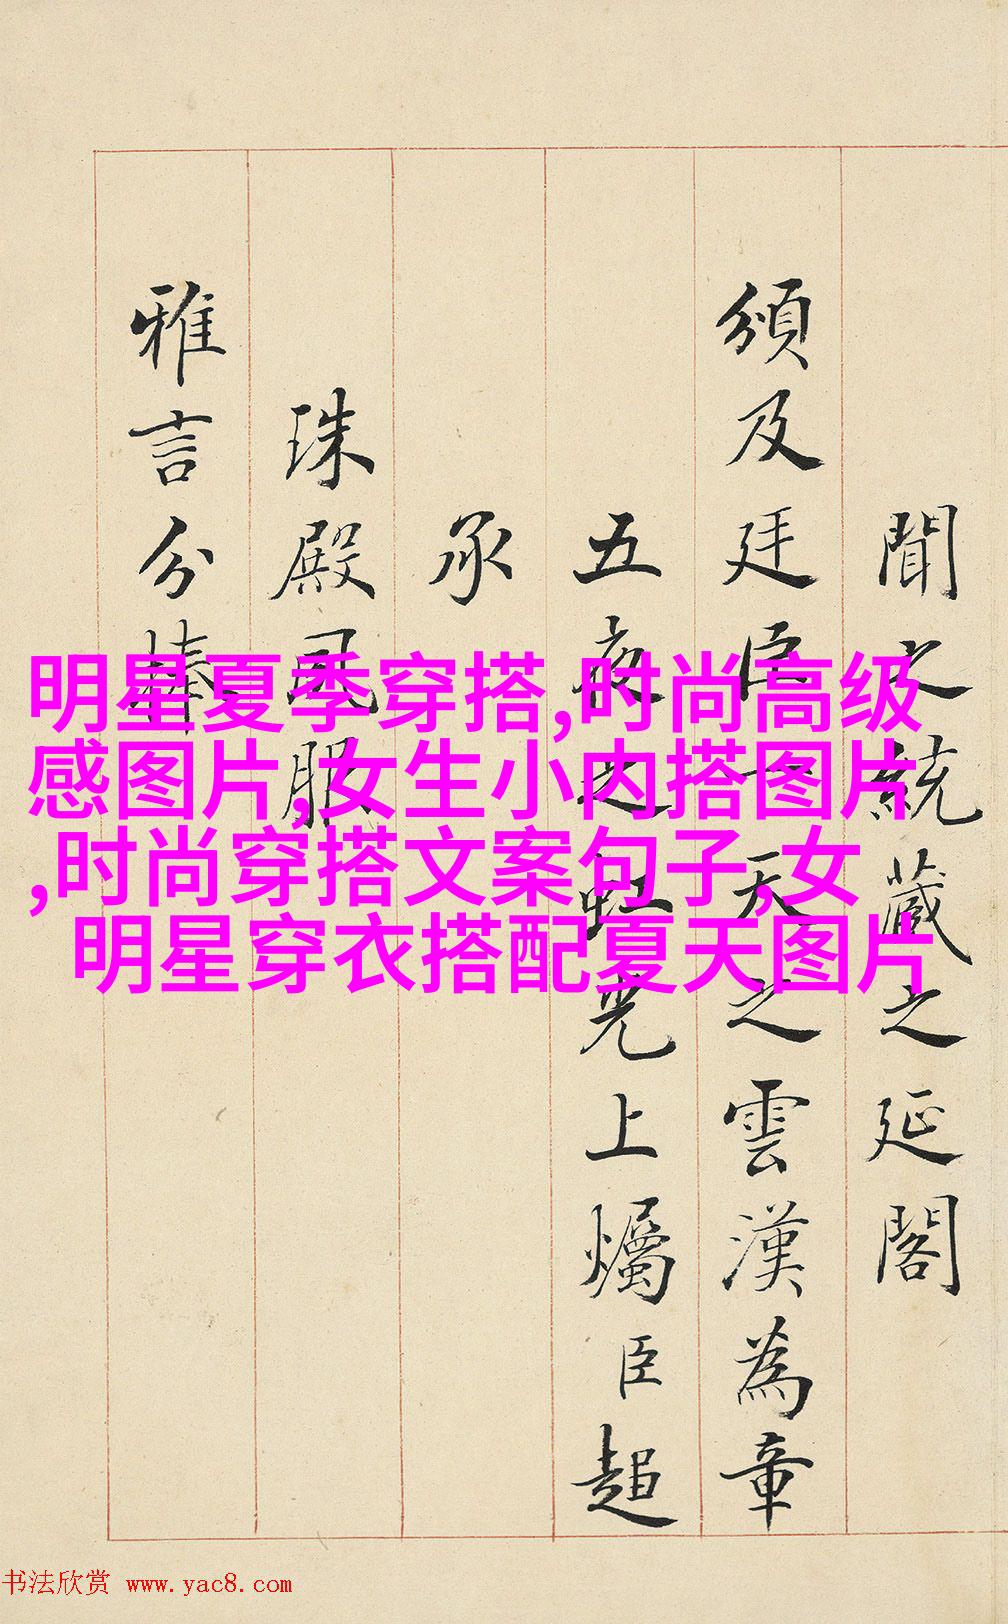 聞之統藏之延閣
頒及廷臣一天之雲漢為章
五夜之虹光上燭臣趙
承
珠殿風服
雅言分捧
明星夏季穿搭,时尚高级
感图片,女生小内搭图片
,时尚穿搭文案句子,女
明星穿衣搭配夏天图片
书法欣赏 www.yac8.com